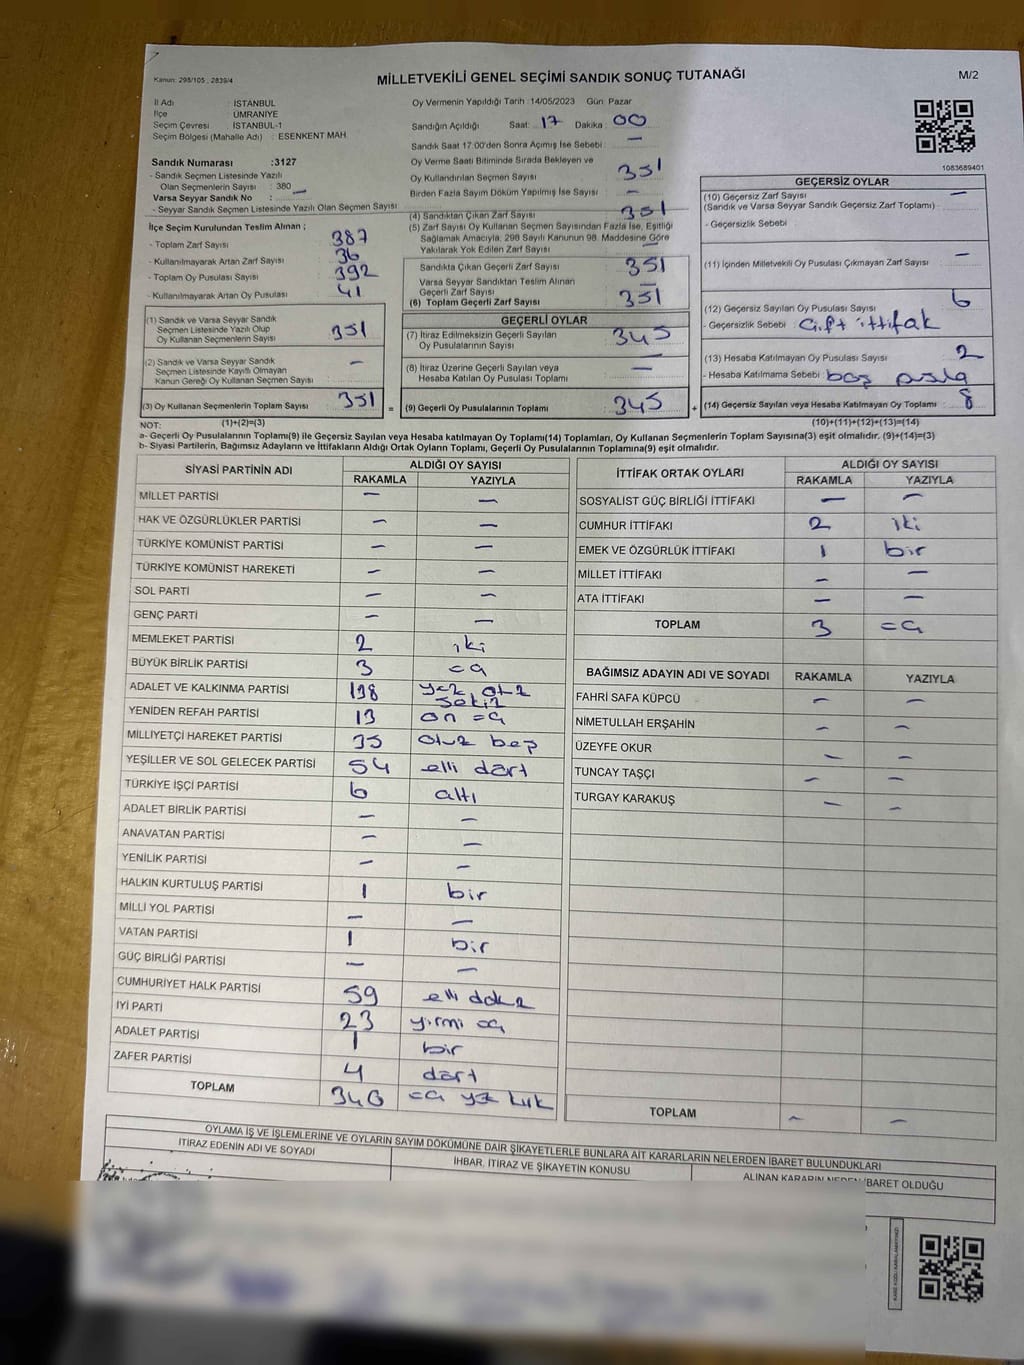 Kanun: 298/105 ; 2839/4
MİLLETVEKİLİ GENEL SEÇİMİ SANDIK SONUÇ TUTANAĞI
M/2
İl Adı : İSTANBUL
İlçe : ÜMRANİYE
Seçim Çevresi : İSTANBUL-1
Seçim Bölgesi (Mahalle Adı) : ESENKENT MAH.
Oy Vermenin Yapıldığı Tarih : 14/05/2023 Gün: Pazar
Sandığın Açıldığı Saat: 17 Dakika : 00
Sandık Saat 17:00'den Sonra Açımış İse Sebebi : —
Sandık Numarası :3127
- Sandık Seçmen Listesinde Yazılı
Olan Seçmenlerin Sayısı : 380
Varsa Seyyar Sandık No : —
- Seyyar Sandık Seçmen Listesinde Yazılı Olan Seçmen Sayısı :
Oy Verme Saati Bitiminde Sırada Bekleyen ve
Oy Kullandırılan Seçmen Sayısı : 351
Birden Fazla Sayım Döküm Yapılmış İse Sayısı : —
1083689401
İlçe Seçim Kurulundan Teslim Alınan ;
- Toplam Zarf Sayısı : 387
- Kullanılmayarak Artan Zarf Sayısı : 36
- Toplam Oy Pusulası Sayısı : 392
- Kullanılmayarak Artan Oy Pusulası : 41
(1) Sandık ve Varsa Seyyar Sandık
Seçmen Listesinde Yazılı Olup
Oy Kullanan Seçmenlerin Sayısı : 351
(2) Sandık ve Varsa Seyyar Sandık
Seçmen Listesinde Kayıtlı Olmayan
Kanun Gereği Oy Kullanan Seçmen Sayısı : —
(3) Oy Kullanan Seçmenlerin Toplam Sayısı : 351 =
(4) Sandıktan Çıkan Zarf Sayısı : 351
(5) Zarf Sayısı Oy Kullanan Seçmen Sayısından Fazla İse, Eşitliği
Sağlamak Amacıyla, 298 Sayılı Kanunun 98. Maddesine Göre
Yakılarak Yok Edilen Zarf Sayısı : —
Sandıkta Çıkan Geçerli Zarf Sayısı : 351
Varsa Seyyar Sandıktan Teslim Alınan
Geçerli Zarf Sayısı : —
(6) Toplam Geçerli Zarf Sayısı : 351
GEÇERLİ OYLAR
(7) İtiraz Edilmeksizin Geçerli Sayılan
Oy Pusulalarının Sayısı : 345
(8) İtiraz Üzerine Geçerli Sayılan veya
Hesaba Katılan Oy Pusulası Toplamı : —
(9) Geçerli Oy Pusulalarının Toplamı : 345 +
GEÇERSİZ OYLAR
(10) Geçersiz Zarf Sayısı : —
(Sandık ve Varsa Seyyar Sandık Geçersiz Zarf Toplamı)
- Geçersizlik Sebebi :
(11) İçinden Milletvekili Oy Pusulası Çıkmayan Zarf Sayısı : —
(12) Geçersiz Sayılan Oy Pusulası Sayısı : 6
- Geçersizlik Sebebi : Çift ittifak
(13) Hesaba Katılmayan Oy Pusulası Sayısı : 2
- Hesaba Katılmama Sebebi : boş pusula
(14) Geçersiz Sayılan veya Hesaba Katılmayan Oy Toplamı : 8
NOT: (1)+(2)=(3) (10)+(11)+(12)+(13)=(14)
a- Geçerli Oy Pusulalarının Toplamı(9) ile Geçersiz Sayılan veya Hesaba katılmayan Oy Toplamı(14) Toplamları, Oy Kullanan Seçmenlerin Toplam Sayısına(3) eşit olmalıdır. (9)+(14)=(3)
b- Siyasi Partilerin, Bağımsız Adayların ve İttifakların Aldığı Ortak Oyların Toplamı, Geçerli Oy Pusulalarının Toplamına(9) eşit olmalıdır.
SİYASİ PARTİNİN ADI ALDIĞI OY SAYISI
RAKAMLA YAZIYLA
MİLLET PARTİSİ — —
HAK VE ÖZGÜRLÜKLER PARTİSİ — —
TÜRKİYE KOMÜNİST PARTİSİ — —
TÜRKİYE KOMÜNİST HAREKETİ — —
SOL PARTİ — —
GENÇ PARTİ — —
MEMLEKET PARTİSİ 2 iki
BÜYÜK BİRLİK PARTİSİ 3 üç
ADALET VE KALKINMA PARTİSİ 138 yüz otuz sekiz
YENİDEN REFAH PARTİSİ 13 on üç
MİLLİYETÇİ HAREKET PARTİSİ 35 otuz beş
YEŞİLLER VE SOL GELECEK PARTİSİ 54 elli dört
TÜRKİYE İŞÇİ PARTİSİ 6 altı
ADALET BİRLİK PARTİSİ — —
ANAVATAN PARTİSİ — —
YENİLİK PARTİSİ — —
HALKIN KURTULUŞ PARTİSİ 1 bir
MİLLİ YOL PARTİSİ — —
VATAN PARTİSİ 1 bir
GÜÇ BİRLİĞİ PARTİSİ — —
CUMHURİYET HALK PARTİSİ 59 elli dokuz
İYİ PARTİ 23 yirmi üç
ADALET PARTİSİ 1 bir
ZAFER PARTİSİ 4 dört
TOPLAM 340 üç yüz kırk
İTTİFAK ORTAK OYLARI ALDIĞI OY SAYISI
RAKAMLA YAZIYLA
SOSYALİST GÜÇ BİRLİĞİ İTTİFAKI — —
CUMHUR İTTİFAKI 2 iki
EMEK VE ÖZGÜRLÜK İTTİFAKI 1 bir
MİLLET İTTİFAKI — —
ATA İTTİFAKI — —
TOPLAM 3 üç
BAĞIMSIZ ADAYIN ADI VE SOYADI RAKAMLA YAZIYLA
FAHRİ SAFA KÜPCÜ — —
NİMETULLAH ERŞAHİN — —
ÜZEYFE OKUR — —
TUNCAY TAŞÇI — —
TURGAY KARAKUŞ — —
TOPLAM — —
OYLAMA İŞ VE İŞLEMLERİNE VE OYLARIN SAYIM DÖKÜMÜNE DAİR ŞİKAYETLERLE BUNLARA AİT KARARLARIN NELERDEN İBARET BULUNDUKLARI
İTİRAZ EDENİN ADI VE SOYADI İHBAR, İTİRAZ VE ŞİKAYETİN KONUSU ALINAN KARARIN NEDEN İBARET OLDUĞU